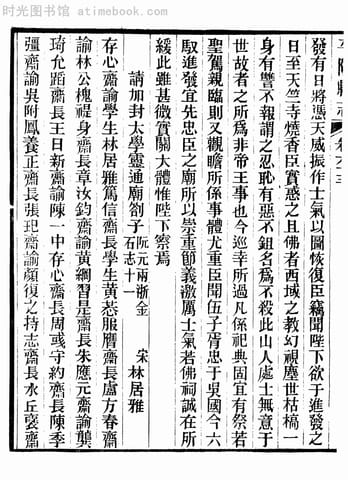 时光图书馆 atimebook.com
發有日將憑天威振作士氣以圖恢復臣竊聞陛下欲于進發之
日至天竺寺燒香臣實惑之且佛者西域之教幻視塵世枯槁一
身有讐不報謂之忍恥有惡不鉏名爲不殺此山人處士無意于
世故者之所爲非帝王事也今巡幸所過凡係祀典固宜有祭若
聖駕親臨則又觀瞻所係事體尤重臣聞伍子胥忠于吳國今六
馭進發宜先忠臣之廟所以崇重節義激厲士氣若佛祠誠在所
緩此雖甚微實關大體惟陛下察焉
請加封太學靈通廟劄子 阮元兩浙金石志十一 宋林居雅
存心齋諭學生林居雅篤信齋長學生黃悫服膺齋長盧方春齋
諭林公槐禔身齋長章汝鈞齋諭黃綱習是齋長朱應元齋諭龔
琦允蹈齋長王日新齋諭陳一中存心齋長周彧守約齋長陳季
彊齋諭吳附鳳養正齋長張玘齋諭顏復之持志齋長水丘袤齋